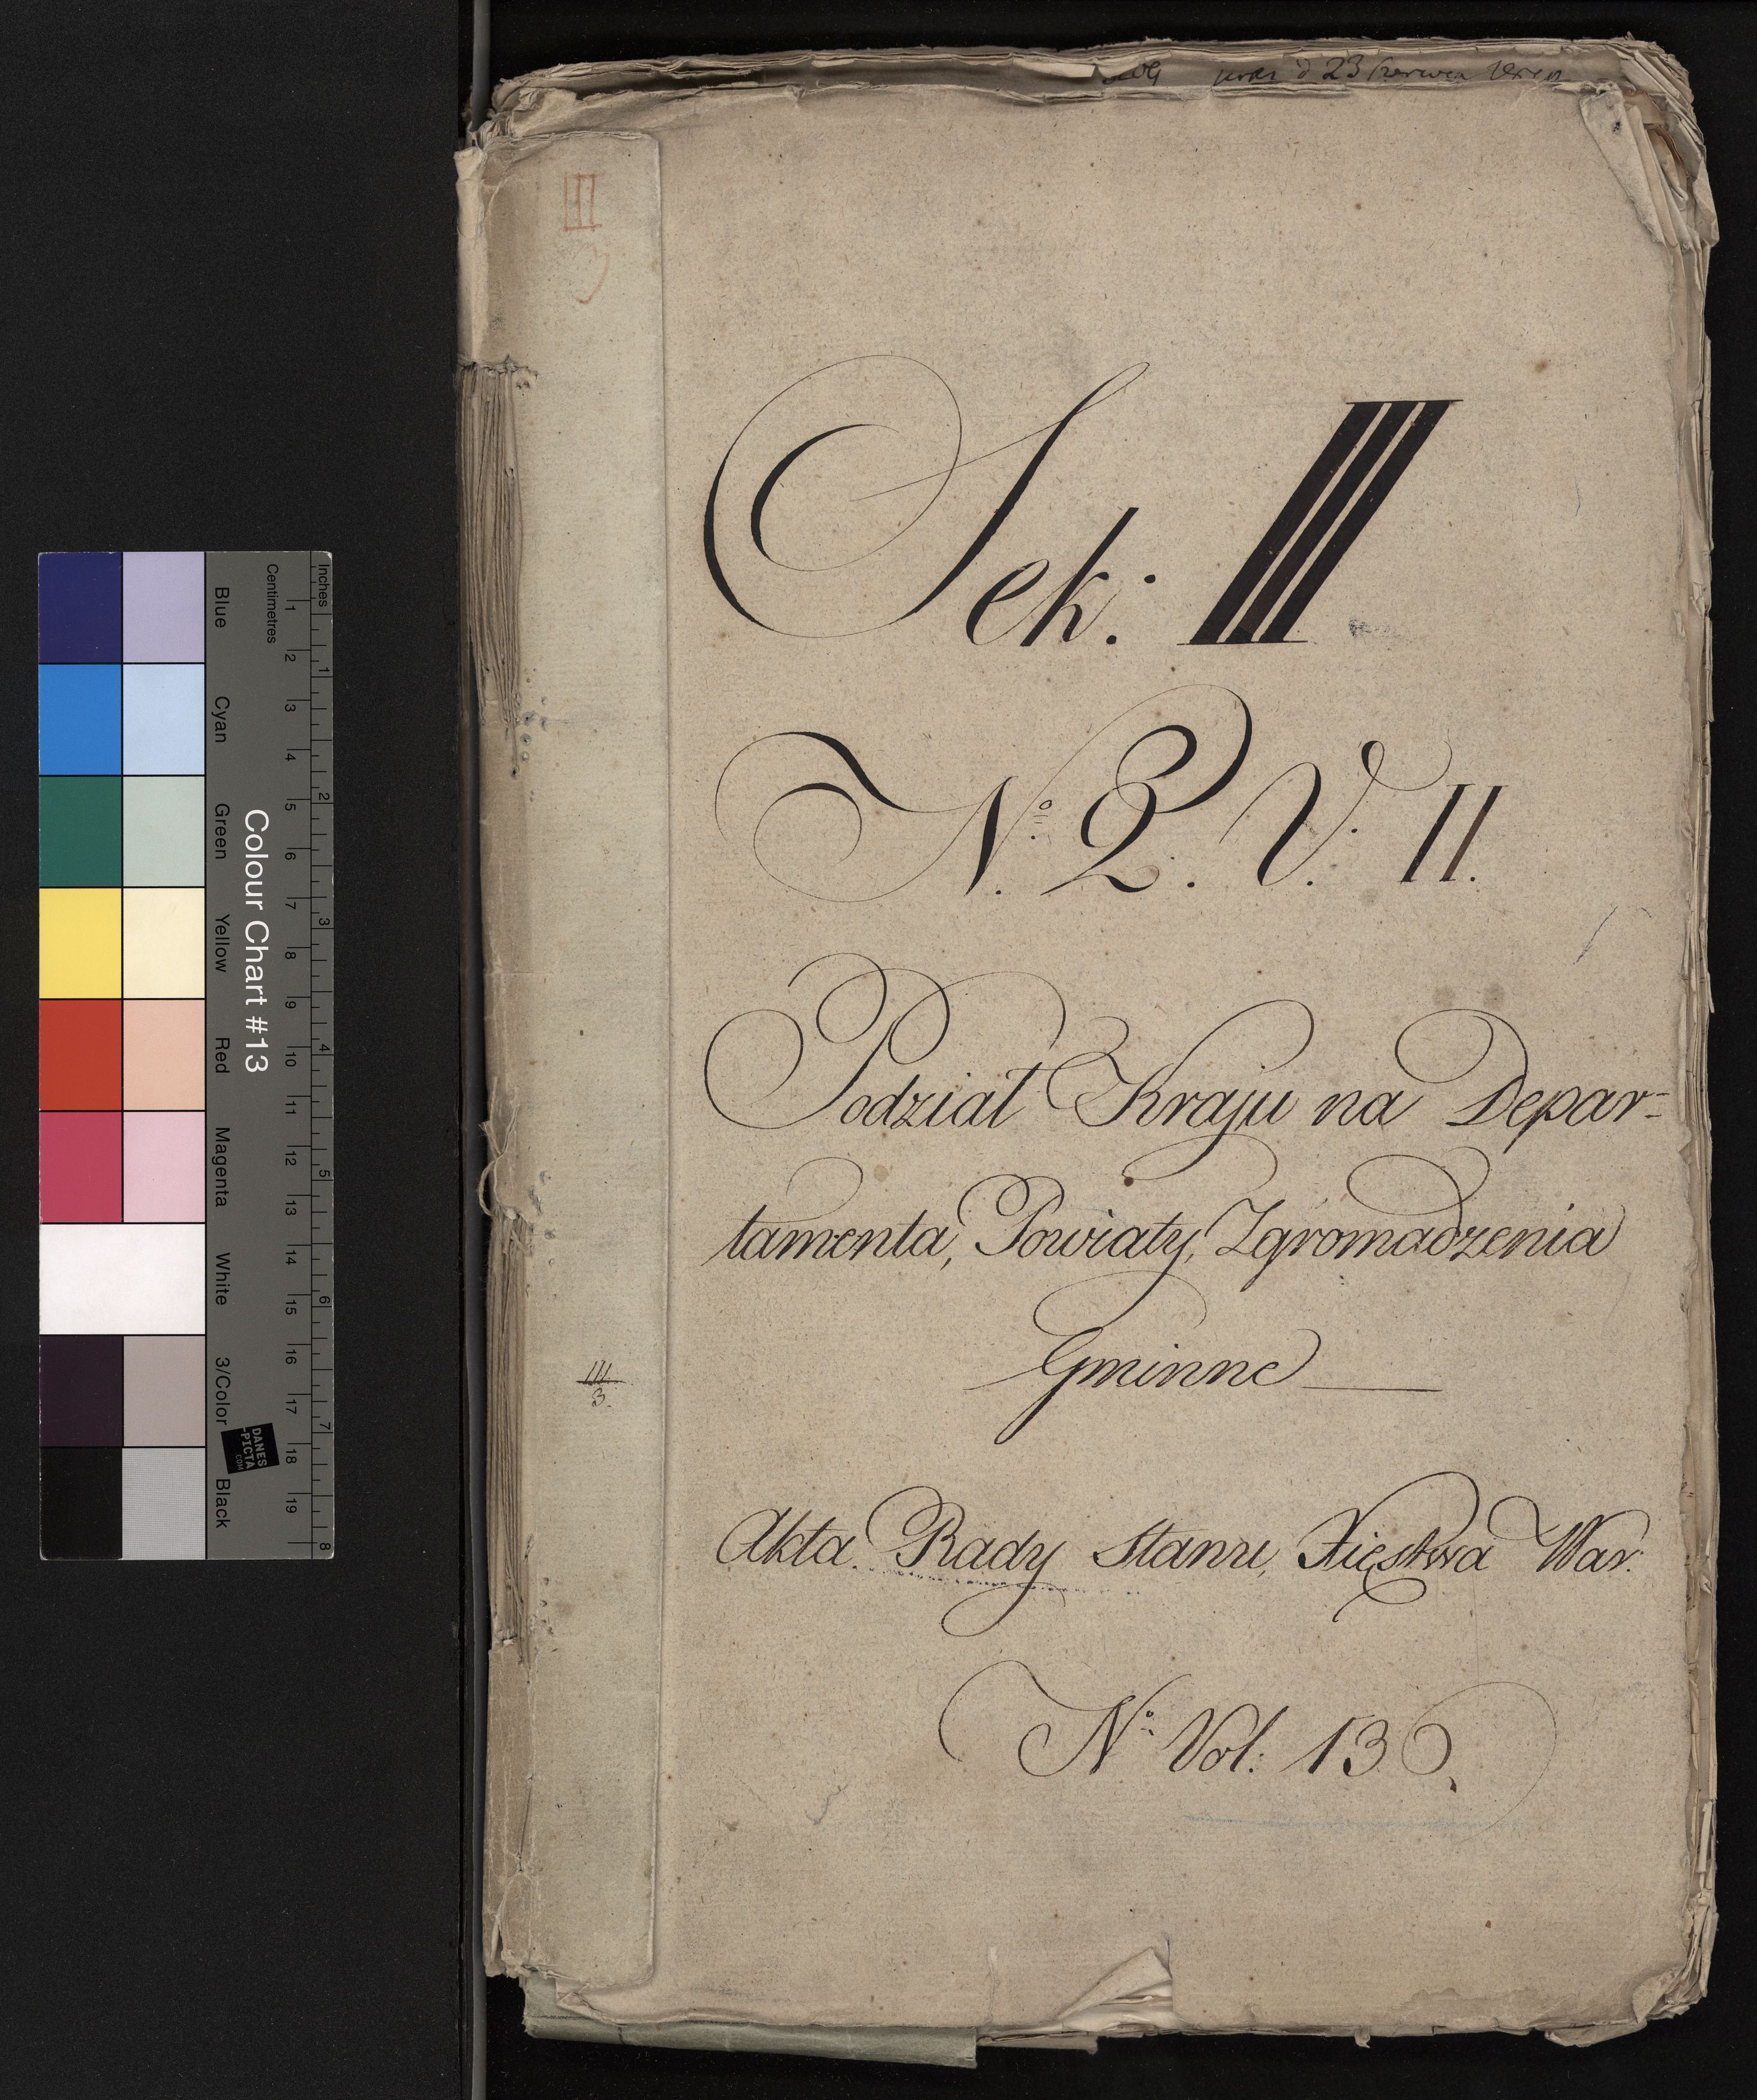 d 23 Czerwca
III
3
Sek: III
No. 2. V. II.
Podział Kraju na Depar=
tamenta, Powiaty, Zgromadzenia
Gminne
III
3.
Akta Rady Stanu, Xięstwa War:
No Vol: 136.
Colour Chart #13
Blue Cyan Green Yellow Red Magenta White 3/Color Black
Centimetres 1 2 3 4 5 6 7 8 9 10 11 12 13 14 15 16 17 18 19
Inches 1 2 3 4 5 6 7 8
DANES
-PICTA
.COM